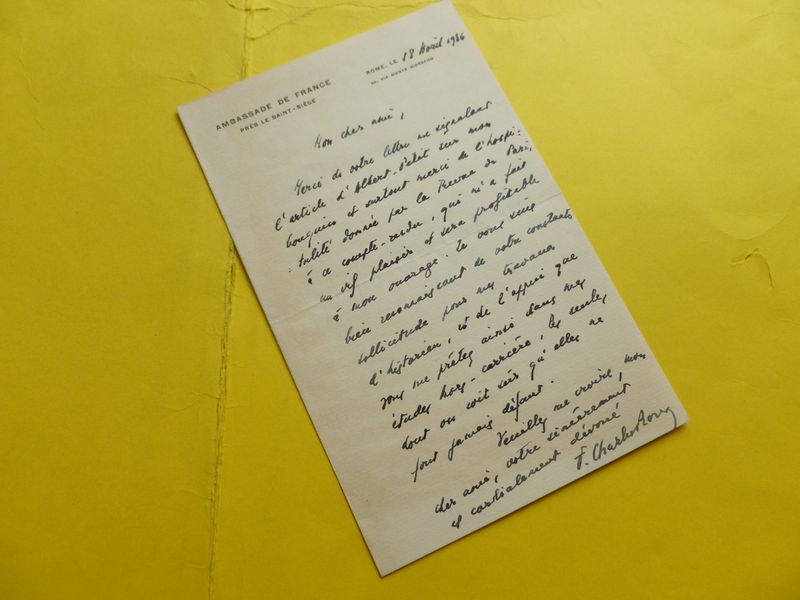 AMBASSADE DE FRANCE
PRÈS LE SAINT-SIÈGE
ROME, LE 18 Avril 1936
Mon cher ami,
Merci de votre lettre me signalant
l'article d'Albert-Petit sur mon
bouquin et surtout merci de l'hospi-
-talité donnée par la Revue de Paris,
à ce compte-rendu, qui m'a fait
un vif plaisir et sera profitable
à mon ouvrage. Je vous suis
bien reconnaissant de votre constante
sollicitude pour mes travaux
d'historien, et de l'appui que
vous me prêtez ainsi dans mes
études hors-carrière, les seules
dont on soit sûr qu'elles ne
font jamais défaut.
Veuillez me croire, mon
cher ami, votre sincèrement
et cordialement dévoué
F. Charles-Roux